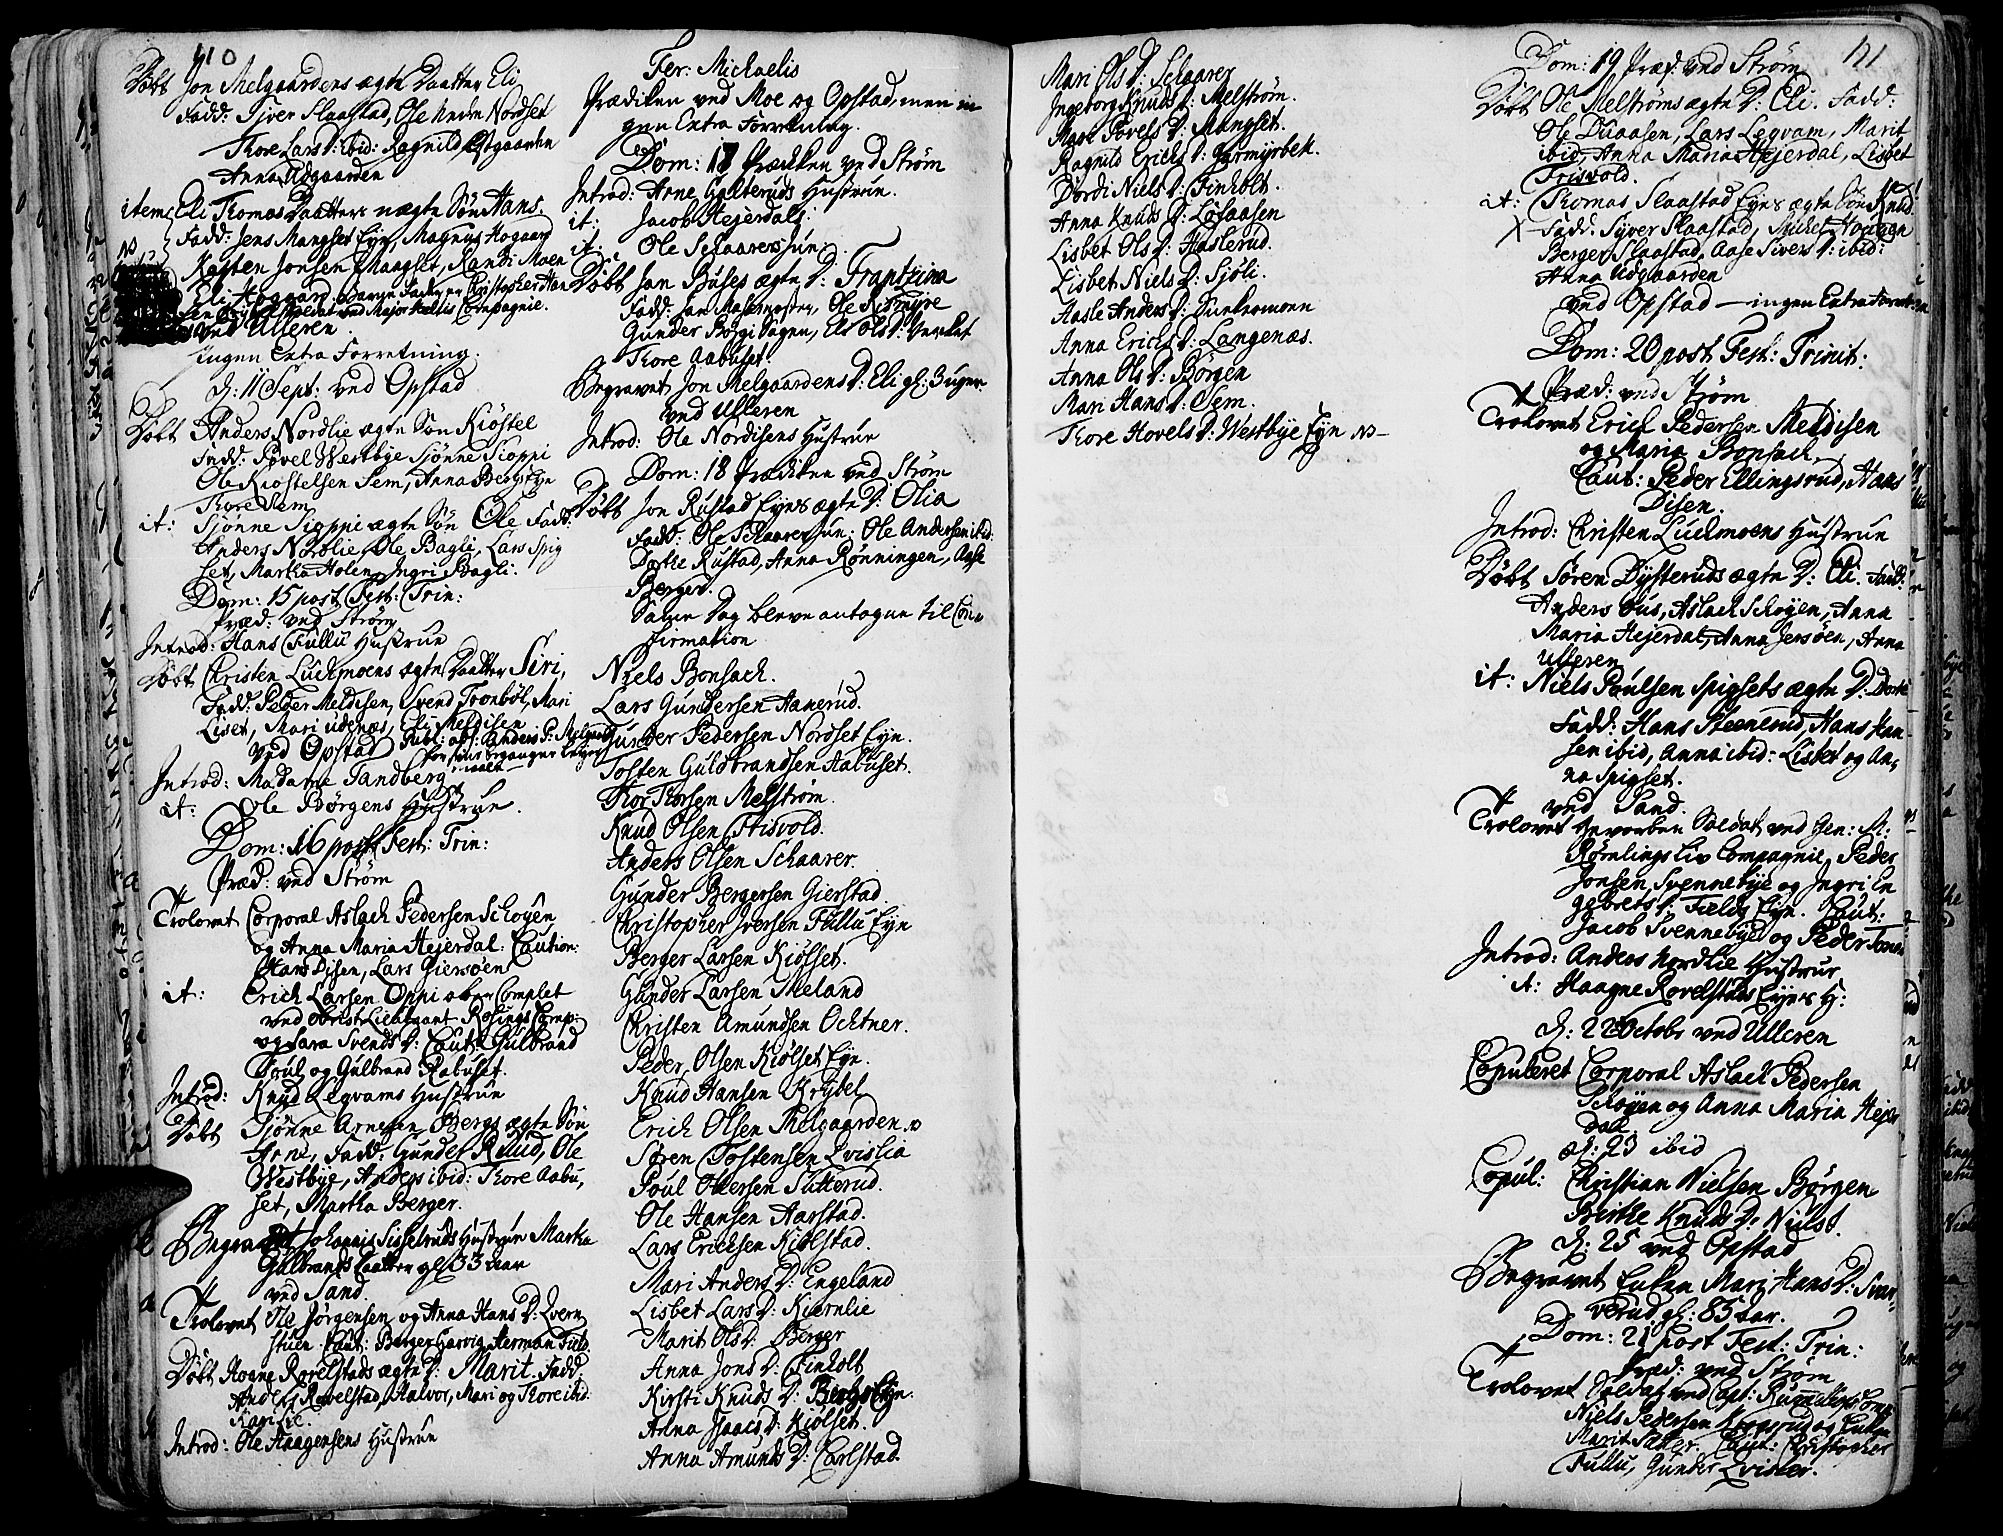 110
Døbt Jon Melgaardens ægte Daatter Eli
Fadd: Syver Slaastad, Ole Nordset
Thore Lars D: ibid: Ragnild Odgaarden
Anna Odgaarden
item Eli Thomas Daatters uægte Søn Hans.
Fadd: Jens Mangset Eyn, Magnus Hogaard
Karsten Jonsen Maagset, Randi Moen
Eli Hogaard.
ved Ulleren
ingen Extra Forretning.
d: 11 Sept: ved Opstad
Døbt Anders Nordlie ægte Søn Kiøstel
Fadd: Povel Westbye Siønne Sioppi
Ole Kiøstelsen Sem, Anna Bergs Eyn
Thore Sem
it: Siønne Sioppi ægte Søn Ole Fadd:
Anders Nordlie, Ole Bagli, Lars Spig
set, Martha Holen, Ingri Bagli.
Dom: 15 post Fest: Trin:
Præd: ved Strøm
Introd: Hans Fullu Hustrue
Døbt Christen Luckmoens ægte Daatter Siri,
Fadd: Peder Meldisen, Svend Tronbøl, Mari
Liset, Mari udenæs, Eli Meldisen
ved Opstad
Introd: Madame Tandberg
it: Ole Børgens Hustrue.
Dom: 16 post Fest: Trin:
Præd: ved Strøm
Trolovet Corporal Aslach Pedersen Schøyen
og Anna Maria Hejerdal: Caution:
Hans Disen, Lars Giersøen
it: Erich Larsen Oppi
ved Obrist Lieutnant Rosings Comp:
og Sara Svends D: Caut: Gulbrand
Poul og Gulbrand Aabuset.
Introd: Knud Legvams Hustrue
Døbt Siønne Arnesen Bergs ægte Søn
Arne, Fadd: Gunder Rilud, Ole
Westbye, Anders ibid: Thore Aabu,
set, Martha Berger.
Begravet Johannis Sigelruds Hustrue Martha
Gulbrands Daatter gl: 33 aar
ved Sand.
Trolovet Ole Jørgensen og Anna Hans D: Qvern
stuen Caut: Berger Harvig, Herman Field
Døbt Hogne Rovelstads ægte D: Marit. Fadd,
Anders Rovelstad, Halvor, Mari og Thore ibid:
Kari Lie.
Introd: Ole Haagensens Hustrue
Fer: Michaelis
Prædiken ved Moe og Opstad, men in
gen Extra Forretning.
Dom: 17 Prædiken ved Strøm
Introd: Arne Galteruds Hustrue.
it: Jacob Hejerdals:
it: Ole Schaarers jun:
Døbt Jan Buses ægte D: Frantzina
Fadd: Jan Mastermosten, Ole Rismyre
Gunder Børgi Sagen, Eli Ols D: Verket
Thore Aabuset
Begravet Jon Melgaardens D: Eli gl: 3 uger
ved Ulleren
Introd: Ole Nordisens Hustrue
Dom: 18 Prædiken ved Strøm
Døbt Jon Rustad Eyes ægte D: Olia
Fadd: Ole Schaarer jun: Ole Andersen ibid:
Dorthe Rustad, Anna Rønningen, Aase
Berger.
Samme Dag bleve antagne til Con
firmation
Niels Bonsach.
Lars Gundersen Aanerud.
Gunder Pedersen Nordset Eyn.
Tosten Guldbrandsen Aabuset.
Thor Thorsen Melstrøm.
Knud Olsen Frisvold.
Anders Olsen Schaarer.
Gunder Bergersen Gierstad
Christopher Iversen Fullu Eyn
Berger Larsen Kiølset.
Gunder Larsen Meland
Christen Amundsen Ochtner.
Peder Olsen Kiølset Eyn.
Knud Hansen Krybel
Erich Olsen Melgaarden.
Søren Tostensen Qvislia
Poul Ollersen Sutterud.
Ole Hansen Aarstad.
Lars Ericksen Kiølstad.
Mari Anders D: Engeland
Lisbet Lars D: Kiernlie
Marit Ols D: Berger
Anna Jons D: Finholt
Kirsti Knuds D: Bergs Eyn.
Anna Isaacs D: Kiølset.
Anna Amunds D: Carlstad.
Mari Ols D: Schaarer
Ingeborg Knuds D: Melstrøm.
Mari Povels D: Mangset.
Ragnild Erichs D: Gormyrbek.
Dordi Niels D: Finholt.
Anna Knuds D: Løfaasen
Lisbet Ols D: Haslerud.
Lisbet Niels D: Sjøli.
Aasle Anders D: Dunkermoen
Anna Erichs D: Langenæs.
Anna Ols D: Børgen
Mari Hans D: Sem.
Thore Hovels D: Westbye Eyn
111
Dom: 19 Præd: ved Strøm
Døbt Ole Melstrøms ægte D: Eli. Fadd:
Ole Duaasen, Lars Legvam, Marit
ibid, Anna Maria Hejerdal, Lisbet
Frisvold.
it: Thomas Slaastad Eyes ægte Søn Knud
Fadd: Syver Slaastad, Mickel Haugen
Berger Slaastad, Aase Sivers D: ibid:
Anna Odgaarden
ved Opstad — ingen Extra Forretn
Dom: 20 post Fest: Trinit:
Præd: ved Strøm
Trolovet Erich Pedersen Meldisen
og Maria Bonsach.
Caut: Peder Ellingsrud, Hans
Disen.
Introd: Christen Luckmoens Hustrue
Døbt Søren Dysteruds ægte D: Eli. Fadd:
Anders Bus, Aslach Schøyen, Anna
Maria Hejerdal, Anna Jersøen, Anna
Ulleren
it: Niels Poulsen Spigsets ægte D: Dorthe
Fadd: Hans Steenerud, Hans Han
sen ibid, Anna ibid: Lisbet og An,
na Spigset.
ved Sand.
Trolovet Hevorben Soldat ved Gen: M:
Rømlings Liv Compagnie, Peder
Jonsen Svennebye og Ingri En
gebrets D: Fields Eyn. Caut:
Jacob Svennebye og Peder
Introd: Anders Nordlie Hustrue
it: Haagne Rovelstads Eyes H:
d: 22 Octobr ved Ulleren
Copuleret Corporal Aslach Pedersen
Schøyen og Anna Maria Hejer
dal.
d: 23 ibid
Copul: Christian Nielsen Børgen
Birthe Knuds D:
d: 25 ved Opstad
Begravet Enken Mari Hans D: Svar,
verud gl: 85 aar.
Dom: 21 post Fest: Trin:
Præd: ved Strøm
Trolovet Soldat ved Capt: Rummelhofs Comp
Niels Pedersen Krogsrud og Enken
Marit Sæter. Caut: Christopher
Fullu, Gunder Qvisler.